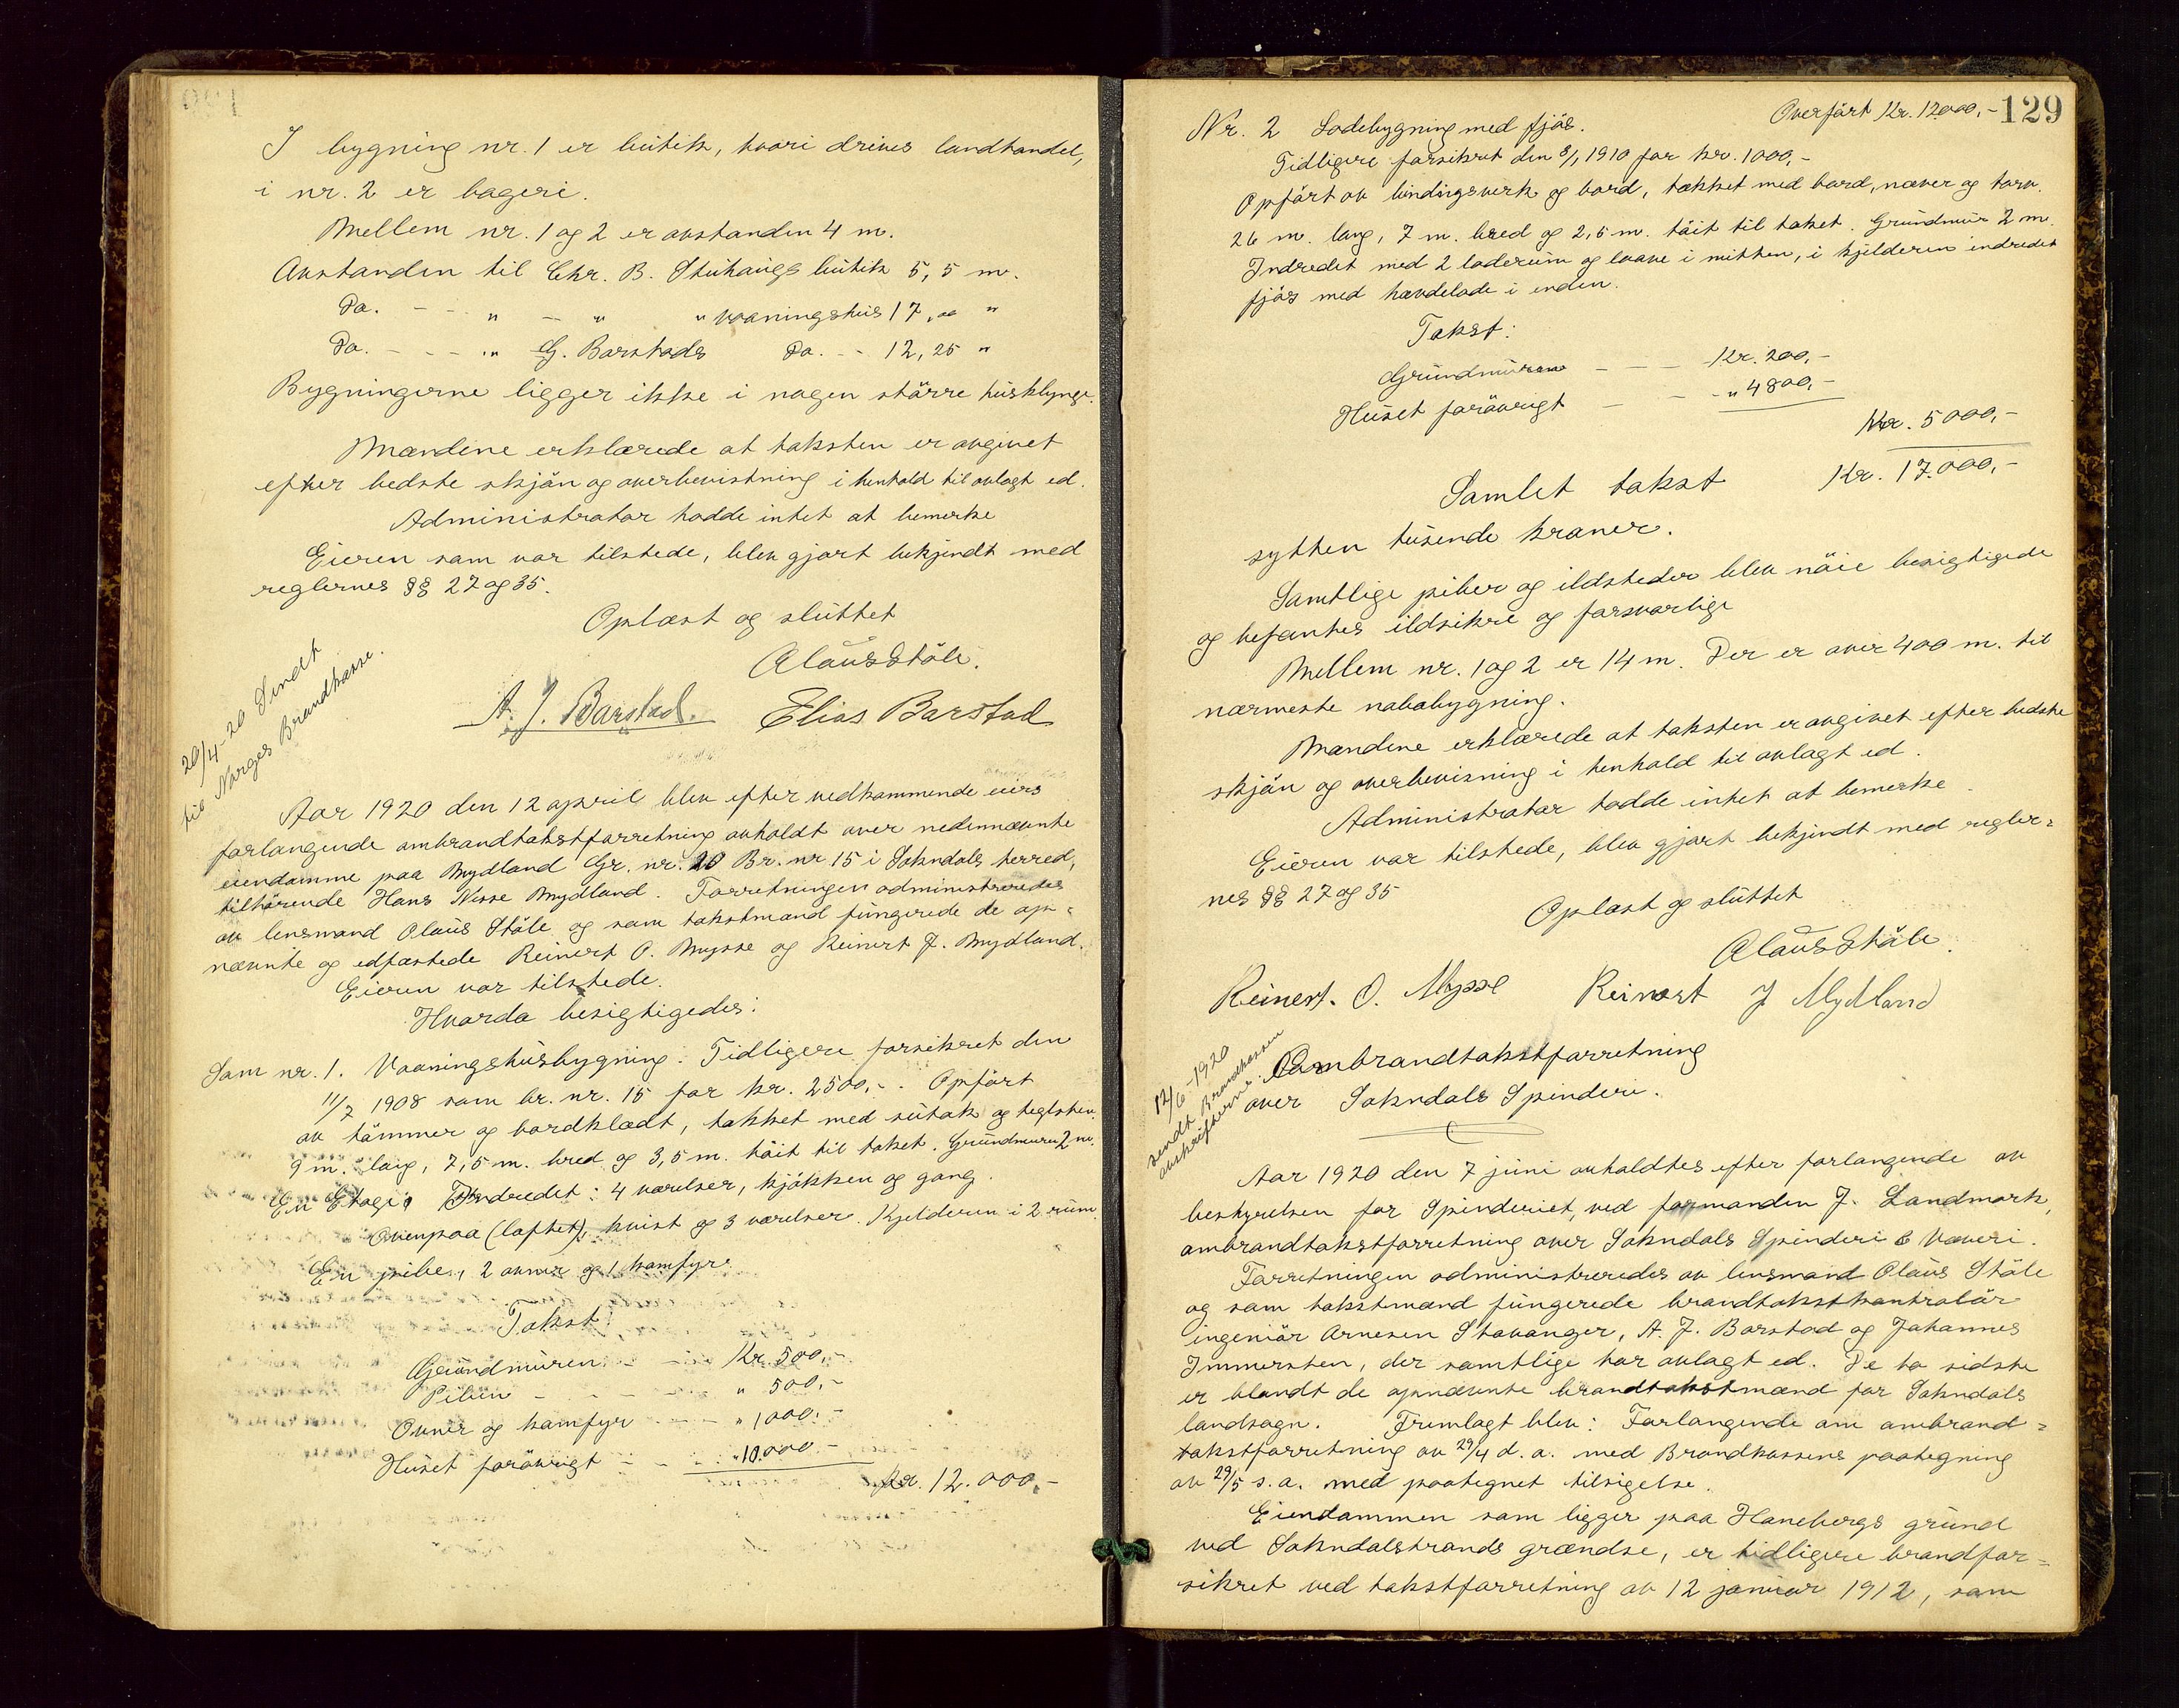 I bygning nr. 1 er butik, hvori drives landhandel,
i nr. 2 er bageri.
Mellem nr. 1 og 2 er avstanden 4 m.
Avstanden til Chr. B. Stuhaugs butik 5,5 m.
Do. - - " - " " vaaningshus 17,00 "
Do. - - - " G. Barstads Do. - - 12,25 "
Bygningerne ligger ikke i nogen större husklynge.
Mændene erklærede at taksten er avgivet
efter bedste skjön og overbevistning i henhold til avlagt ed.
Administrator hadde intet at bemerke
Eieren som var tilstede, blev gjort bekjendt med
reglernes §§ 27 og 35.
Oplæst og sluttet
Olaus Stöle.
A. J. Barstad. Elias Barstad
20/4-20 Sendt
til Norges Brandkasse.
Aar 1920 den 12 april blev efter vedkommende eiers
forlangende ombrandtakstforretning avholdt over nedennævnte
eiendomme paa Mydland Gr. nr. 20 Br. nr. 15 i Sokndals herred,
tilhörende Hans Nisse Mydland. Forretningen administreredes
av lensmand Olaus Stöle og som takstmænd fungerede de op-
nævnte og edfæstede Reinert O. Mysse og Reinert J. Mydland.
Eieren var tilstede.
Hvorda besigtigedes:
Som nr. 1. Vaaningshusbygning. Tidligere forsikret den
11/7 1908 som br. nr. 15 for kr. 2500,-. Opfört
av tömmer og bordklædt, tækket med sutak og teglsten.
9 m. lang, 7,5 m. bred og 3,5 m. höit til taket. Grundmuren 2 m.
En Etage. Indredet: 4 værelser, kjökken og gang.
Ovenpaa (loftet), kvist og 3 værelser. Kjelderen i 2 rum.
En pibe, 2 ovner og 1 komfyr.
Takst:
Grundmuren - - Kr. 500,-
Piben - - - - " 500,-
Ovner og komfyr - - - " 1000,-
Huset forövrigt - - " 10.000.-
Kr. 12.000,-
129
Overfört Kr. 12000,-
Nr. 2 Lodebygning med fjös.
Tidligere forsikret den 8/1 1910 for kr. 1000,-
Opfört av bindingsverk og bord, tækket med bord, næver og torv.
26 m. lang, 7 m. bred og 2,5 m. höit til taket. Grundmur 2 m.
Indredet med 2 loderum og laave i mitten, i kjelderen indredet
fjös med hævdelade i enden.
Takst:
Grundmuren - - - Kr. 200,-
Huset forövrigt - - - " 4800,-
Kr. 5000,-
Samlet takst Kr. 17.000,-
sytten tusende kroner.
Samtlige piber og ildsteder blev nöie besigtigede
og befantes ildsikre og forsvarlige
Mellem nr. 1 og 2 er 14 m. Der er over 400 m. til
nærmeste nabobygning.
Mændene erklærede at taksten er avgivet efter bedste
skjön og overbevisning i henhold til avlagt ed.
Administrator hadde intet at bemerke.
Eieren var tilstede, blev gjort bekjendt med regler-
nes §§ 27 og 35
Oplæst og sluttet
Olaus Stöle.
Reinert. O. Mysse Reinert J Mydland
12/6-1920
sendt Brandkassen
avskrifterne.
Ombrandtakstforretning
over Sokndals Spinderi.
Aar 1920 den 7 juni avholdtes efter forlangende av
bestyrelsen for Spinderiet, ved formanden J. Landmark,
ombrandtakstforretning over Sokndals Spinderi & Væveri.
Forretningen administreredes av lensmand Olaus Stöle
og som takstmænd fungerede brandtakstkontrolör
ingeniör Arnesen Stavanger, A. J. Barstad og Johannes
Immersten, der samtlige har avlagt ed. De to sidste
er blandt de opnævnte brandtakstmænd for Sokndals
landsogn. Fremlagt blev: Forlangende om ombrand-
takstforretning av 29/4 d. a. med Brandkassens paategning
av 29/5 s. a. med paategnet tilsigelse.
Eiendommen som ligger paa Hanebergs grund
ved Sokndalstrands grændse, er tidligere brandfor-
sikret ved takstforretning av 12 januar 1912, som